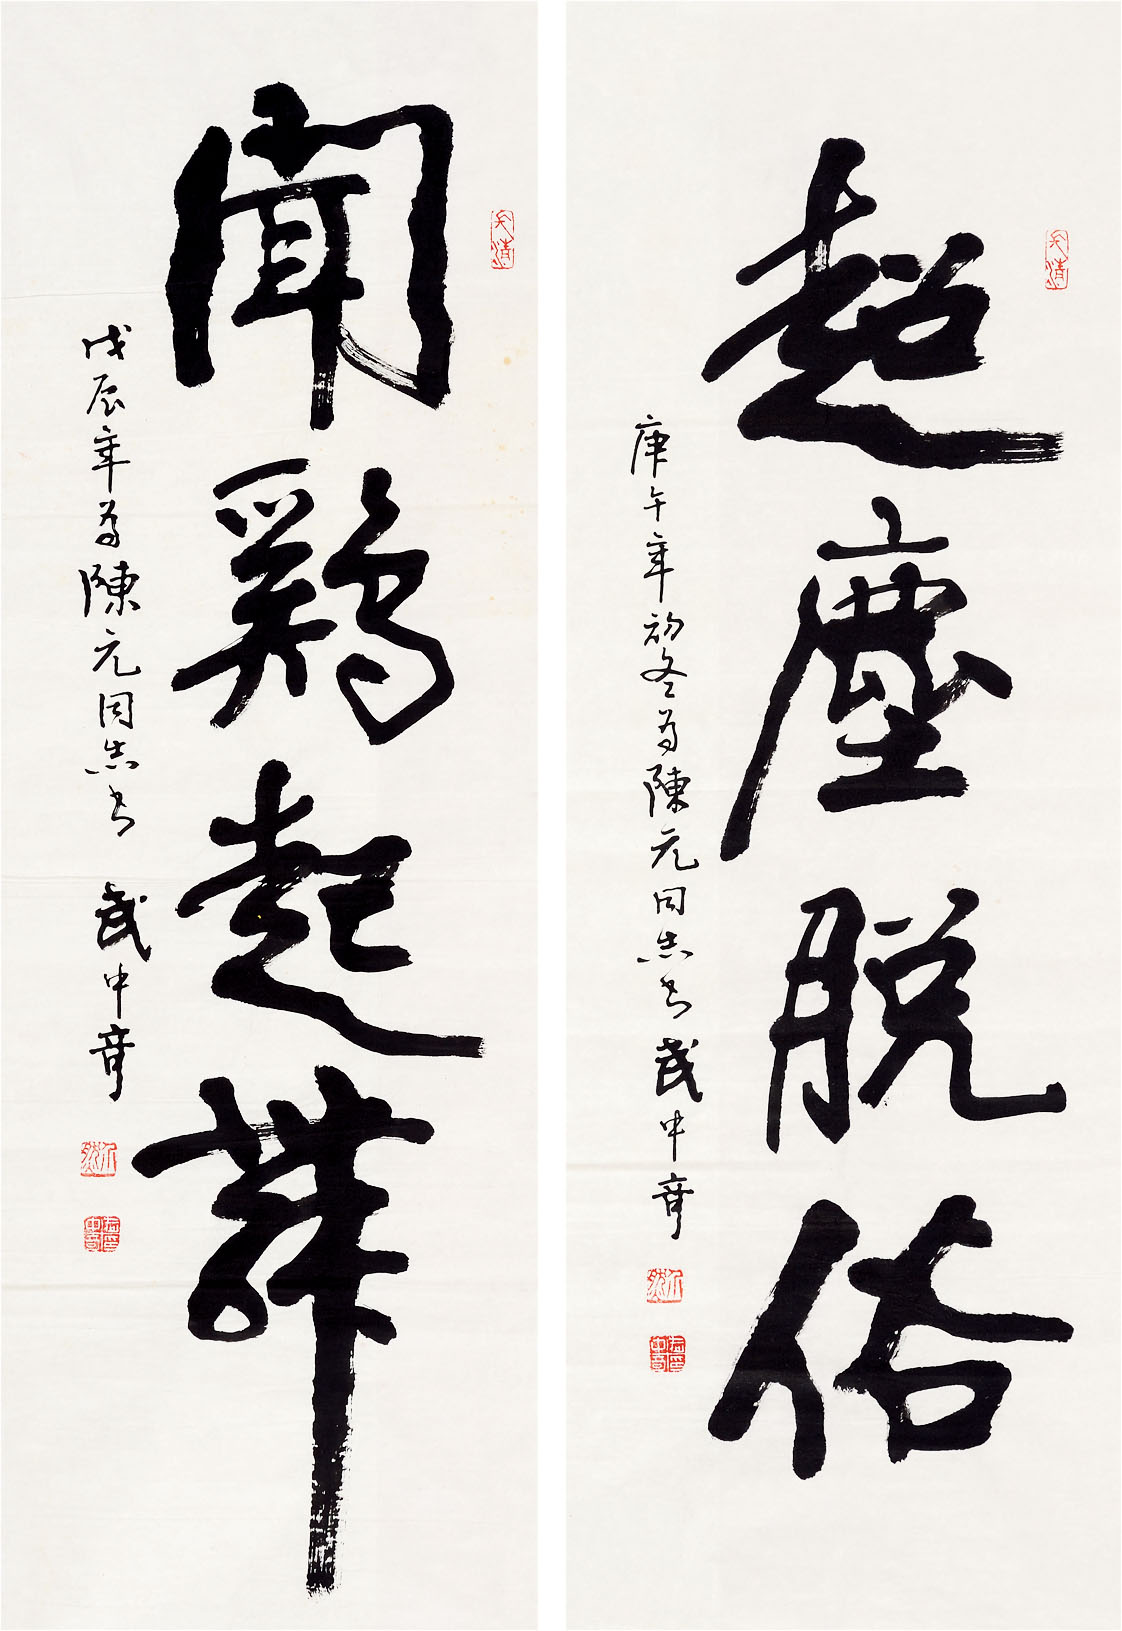 超塵脱俗
庚午年初冬为陳元同志书武中奇
聞鷄起舞
戊辰年为陳元同志书 武中奇